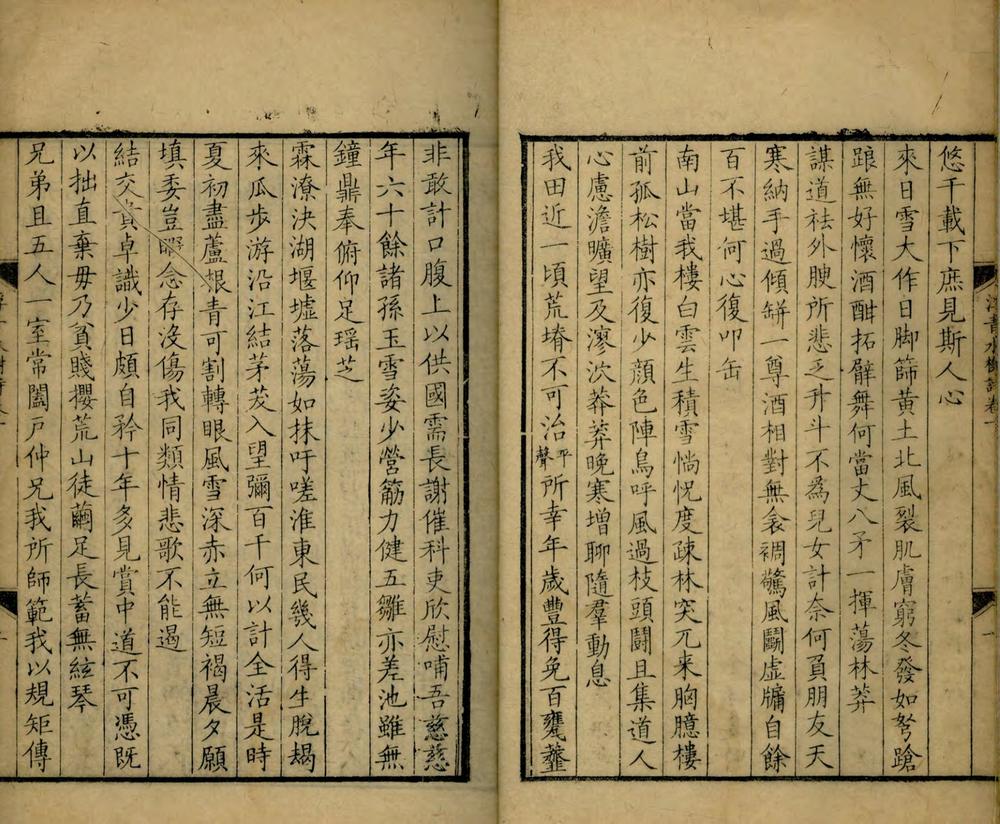 悠千載下庶見斯人心
來日雪大作日脚篩黃土北風裂肌膚窮冬發如弩蹌
踉無好懷酒酣拓臂舞何當丈八矛一揮蕩林莽
謀道祛外腴所悲乏升斗不為兒女計奈何負朋友天
寒納手過傾缾一尊酒相對無衾裯驚風鬭虛牖自餘
百不堪何心復叩缶
南山當我樓白雲生積雪惝怳度疎林突兀来胸臆樓
前孤松樹亦復少顏色陣烏呼風過枝頭鬪且集道人
心慮澹曠望及漻泬莽莽晚寒增聊隨羣動息
我田近一頃荒塉不可治平聲所幸年歲豐得免百甕虀
非敢計口腹上以供國需長謝催科吏欣慰哺吾慈慈
年六十餘諸孫玉雪姿少營筋力健五雛亦差池雖無
鐘鼎奉俯仰足瑶芝
霖潦決湖堰墟落蕩如抹吁嗟淮東民幾人得生脫朅
來瓜步游沿江結茅茇入望彌百千何以計全活是時
夏初盡蘆根青可割轉眼風雪深赤立無短褐晨夕願
填委豈暇念存没傷我同類情悲歌不能遏
結交貴卓識少日頗自矜十年多見賞中道不可憑既
以拙直棄毋乃貧賤攖荒山徒繭足長蓄無絃琴
兄弟且五人一室常闔戸仲兄我所師範我以規矩傳